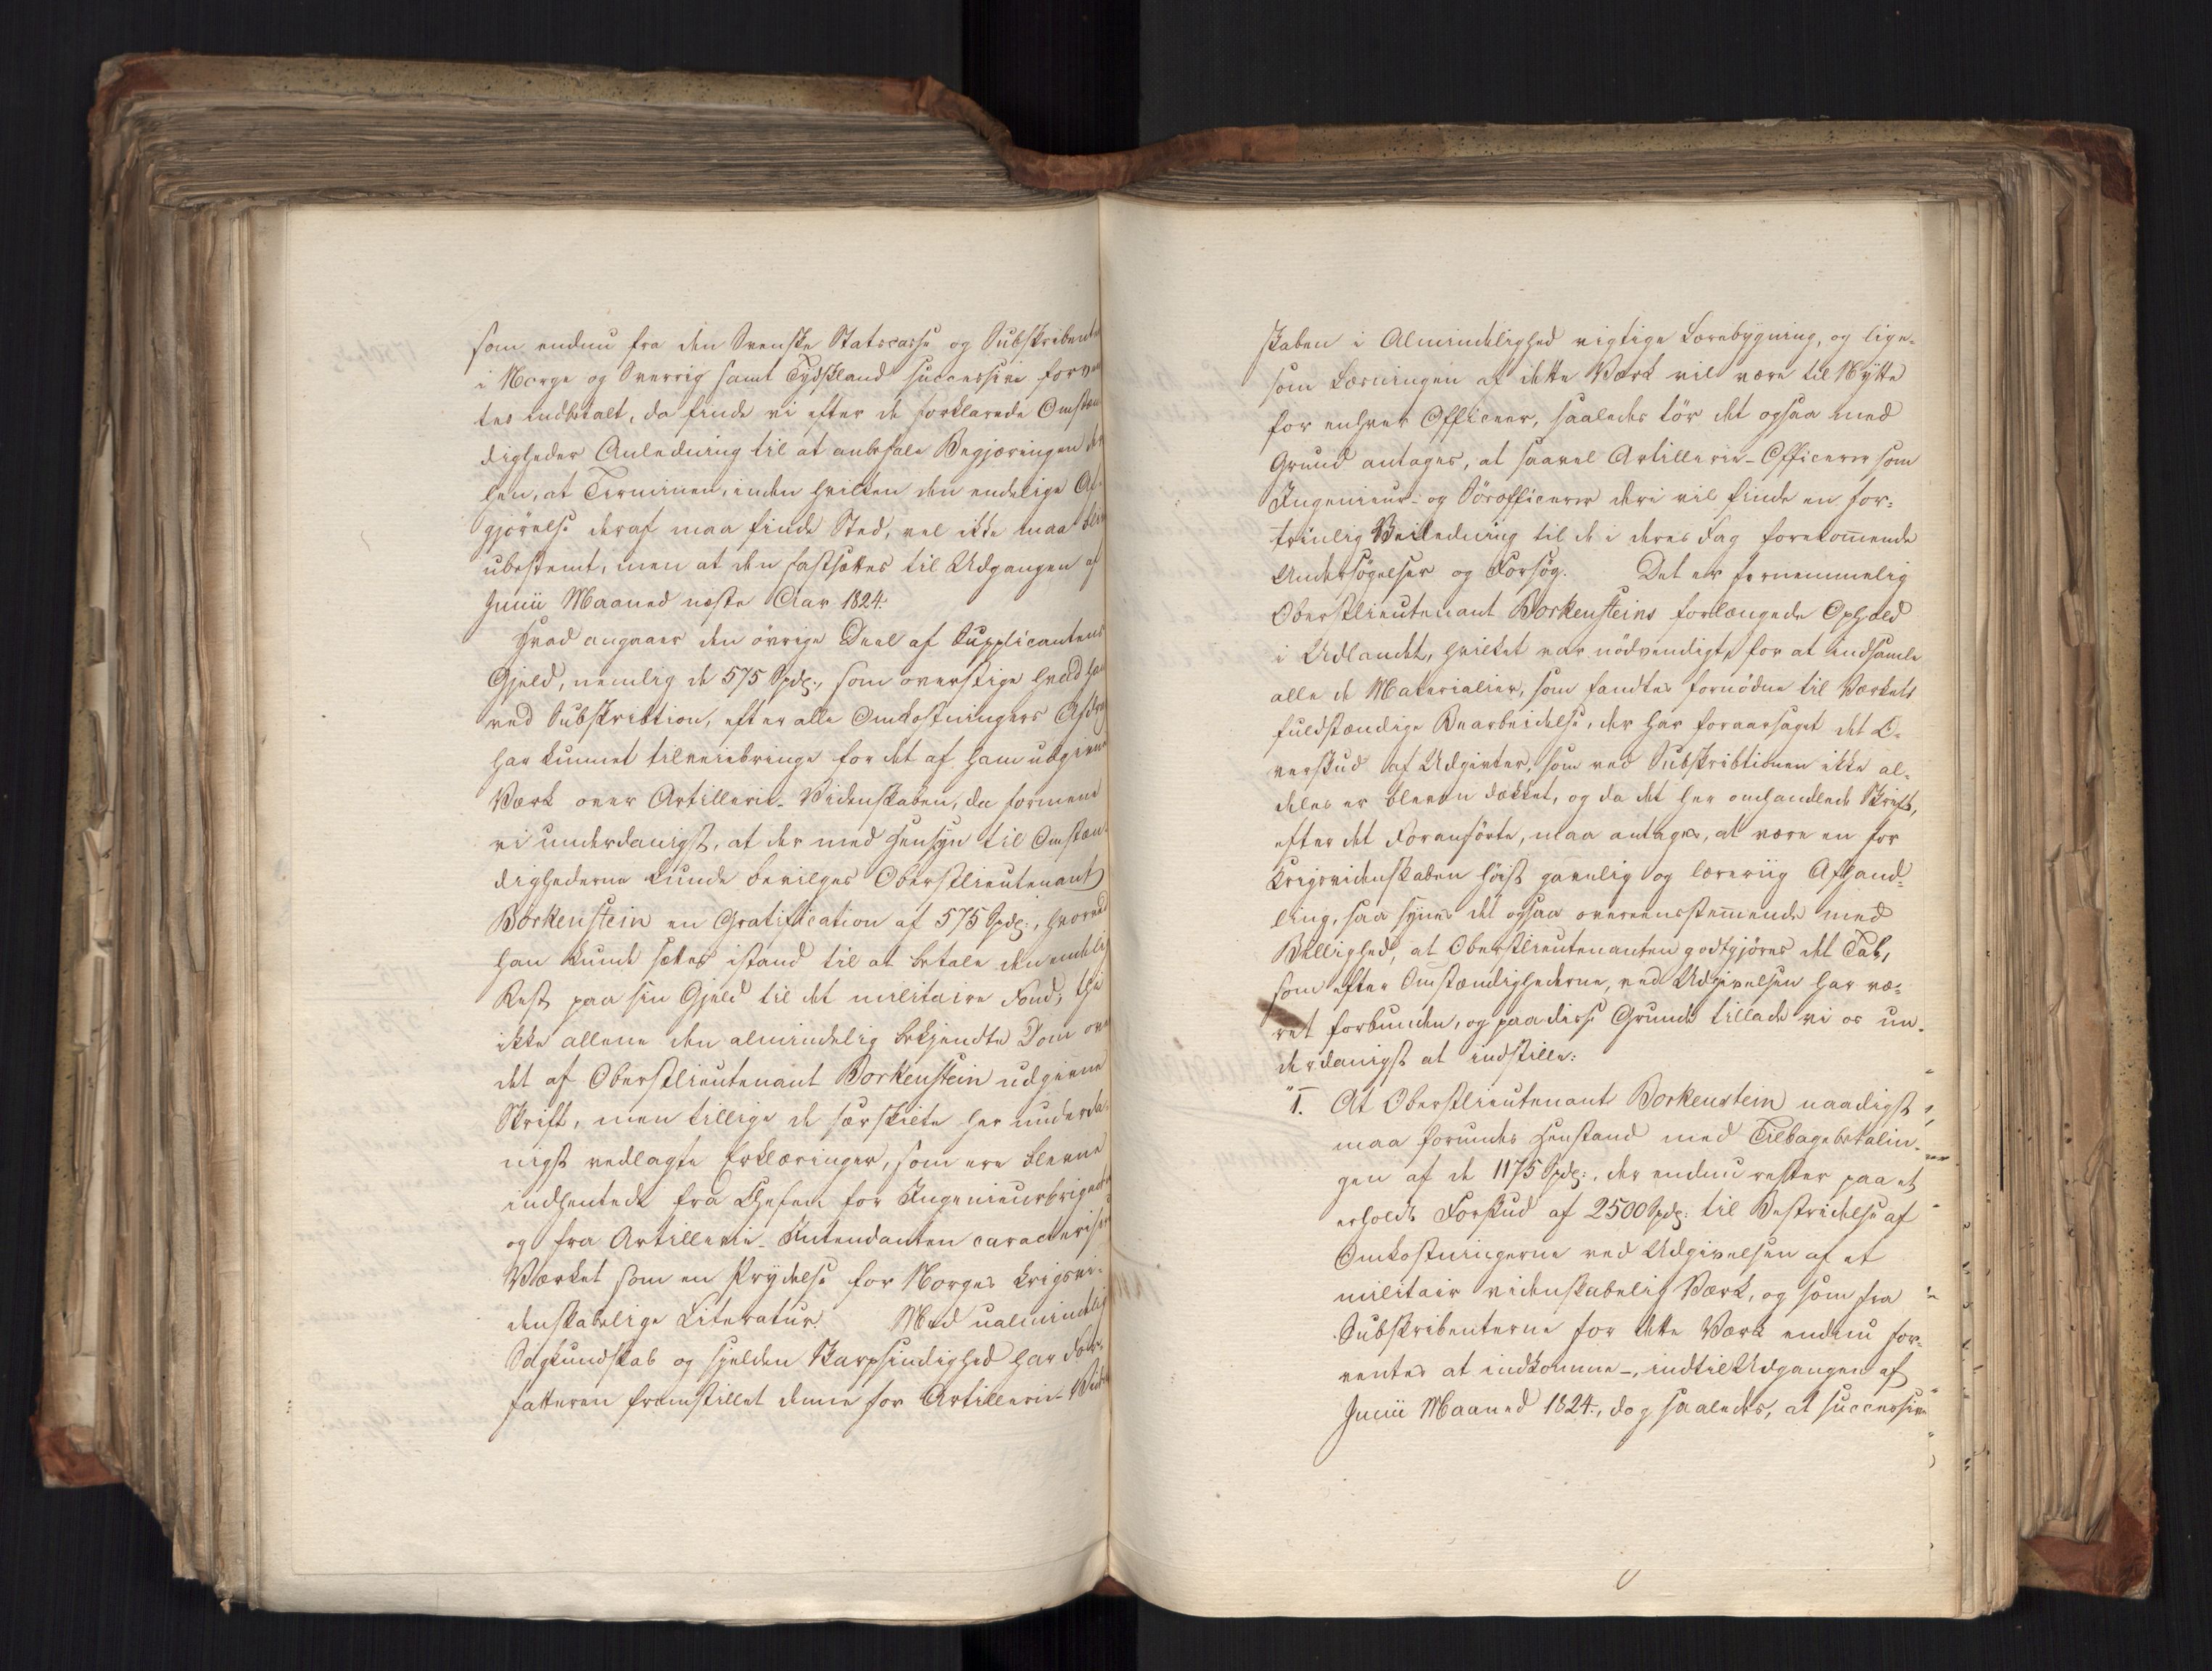 som endnu fra den Svenske Statscasse og Subskribente
i Norge og Sverrig samt Tydskland successive forven
tes indbetalt, da finde vi efter de forklarede Omstæn
digheder Anledning til at anbefale Begjæringen der
hen, at Terminen, inden hvilken den endelige Af-
gjörelse deraf maa finde Sted, vel ikke maa blive
ubestemt, men at den fastsættes til Udgangen af
Junii Maaned næste Aar 1824.
Hvad angaaer den övrige Deel af Supplicantens
Gjeld, nemlig de 575 Spd:, som overstige hvad han
ved Subskribtion, efter alle Omkostningers Afdrag
har kunnet tilveiebringe for det af ham udgivne
Værk over Artillerie-Videnskaben, da formene
vi underdanigst, at der med Hensyn til Omstæn-
dighederne kunde bevilges Oberstlieutenant
Borkenstein en Gratification af 575 Spd:, hvorved
han kunde sættes istand til at betale den endelig
Rest paa sin Gjeld til det militaire Fond; thi
ikke allene den almindelig bekjendte Dom over
det af Oberstlieutenant Borkenstein udgivne
Skrift, men tillige de særskilte her underda-
nigst vedlagte Erklæringer, som ere blevne
indhentede fra Chefen for Ingenieurbrigaden
og fra Artillerie-Intendanten caracterisere
Værket som en Prydelse for Norges krigsvi-
denskabelige Literatur. Med ualmindelig
Sagkundskab og sjelden Skarpsindighed har For-
fatteren fremstillet denne for Artillerie-Viden
skaben i Almindelighed vigtige Lærebygning, og lige-
som Læsningen af dette Værk vil være til Nytte
for enhver Officeer, saaledes tör det ogsaa med
Grund antages, at saavel Artillerie-Officerer som
Ingenieur- og Söeofficerer deri vil finde en for-
trinlig Veiledning til de i deres Fag forekommende
Undersögelser og Forsög. Det er fornemmelig
Oberstlieutenant Borkensteins forlængede Ophold
i Udlandet, hvilket var nödvendigt, for at indsamle
alle de Materialier, som fandtes fornödne til Værkets
fuldstændige Bearbeidelse, der har foraarsaget det O-
verskud af Udgivter, som ved Subskribtionen ikke al-
deles er bleven dækket, og da det her omhandlede Skrift,
efter det Foranförte, maa antages, at være en for
Krigsvidenskaben höist gavnlig og lærerig Afhand-
ling, saa synes det ogsaa overeensstemmende med
Billighed, at Oberstlieutenanten godtgjöres det Tab,
som efter Omstændighederne, ved Udgivelsen har væ-
ret forbunden, og paa disse Grunde tillade vi os un-
derdanigst at indstille:
"1. At Oberstlieutenant Borkenstein naadigst
maa forundes Henstand med Tilbagebetalin-
gen af de 1175 Spd:, der endnu rester paa et
erholdt Forskud af 2500 Spd: til Bestridelse af
Omkostningerne ved Udgivelsen af et
militair videnskabelig Værk, og som fra
Subskribenterne for dette Værk endnu for-
ventes at indkomme -, indtil Udgangen af
Junii Maaned 1824, dog saaledes, at successive